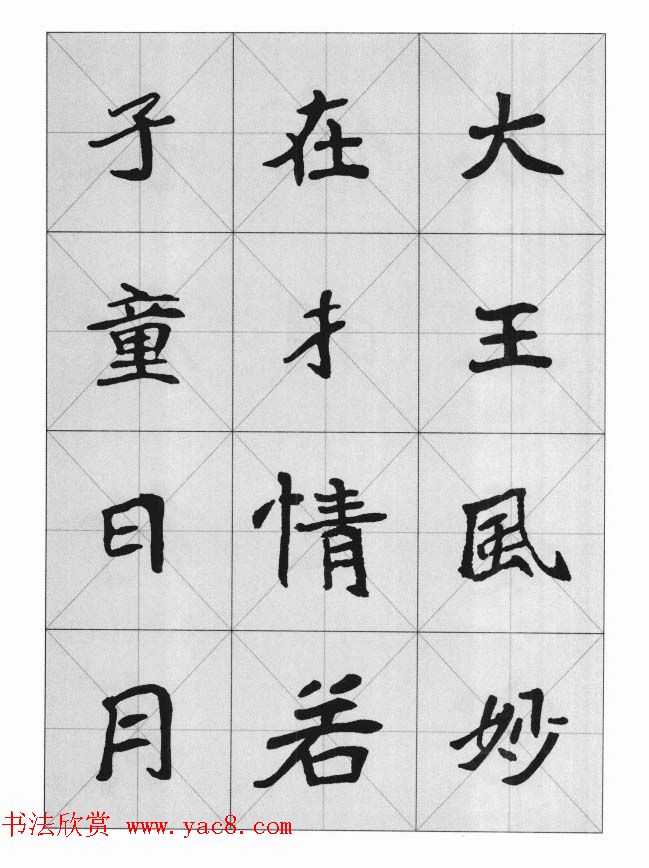 大王風妙
在才情若
子童日月
书法欣赏 www.yac8.com